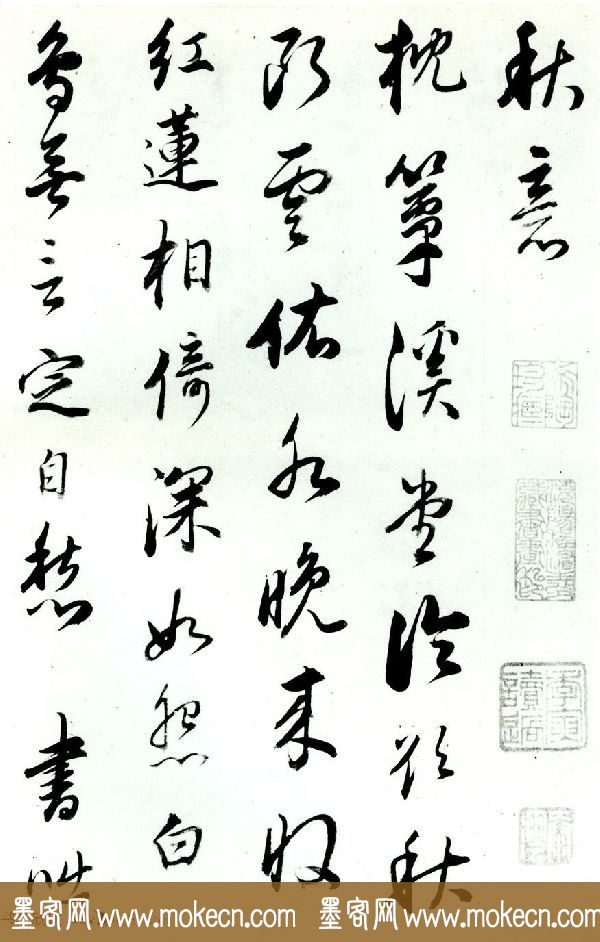 秋意
枕簟溪堂冷欲秋
斷雲依水晚來收
紅蓮相倚深如怨白
鳥無言定自愁 書咄
墨客网 www.mokecn.com 墨客网 www.mokecn.com